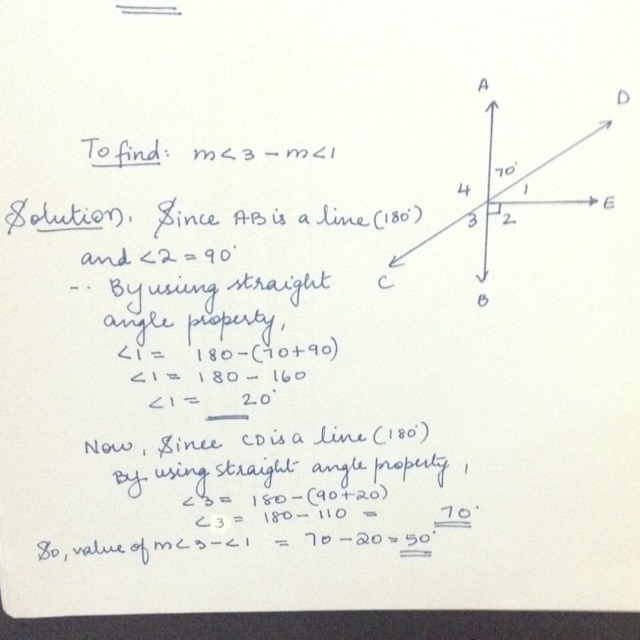 To find: m<3 - m<1
A
D
70°
4
1
E
3
2
C
B
Solution. Since AB is a line (180°)
and <2 = 90°
-. By using straight
angle property,
<1 = 180-(70+90)
<1 = 180 - 160
<1 = 20°
Now, Since CD is a line (180°)
By using straight angle property,
<3 = 180-(90+20)
<3 = 180 - 110 = 70°
So, value of m<3-<1 = 70-20 = 50°